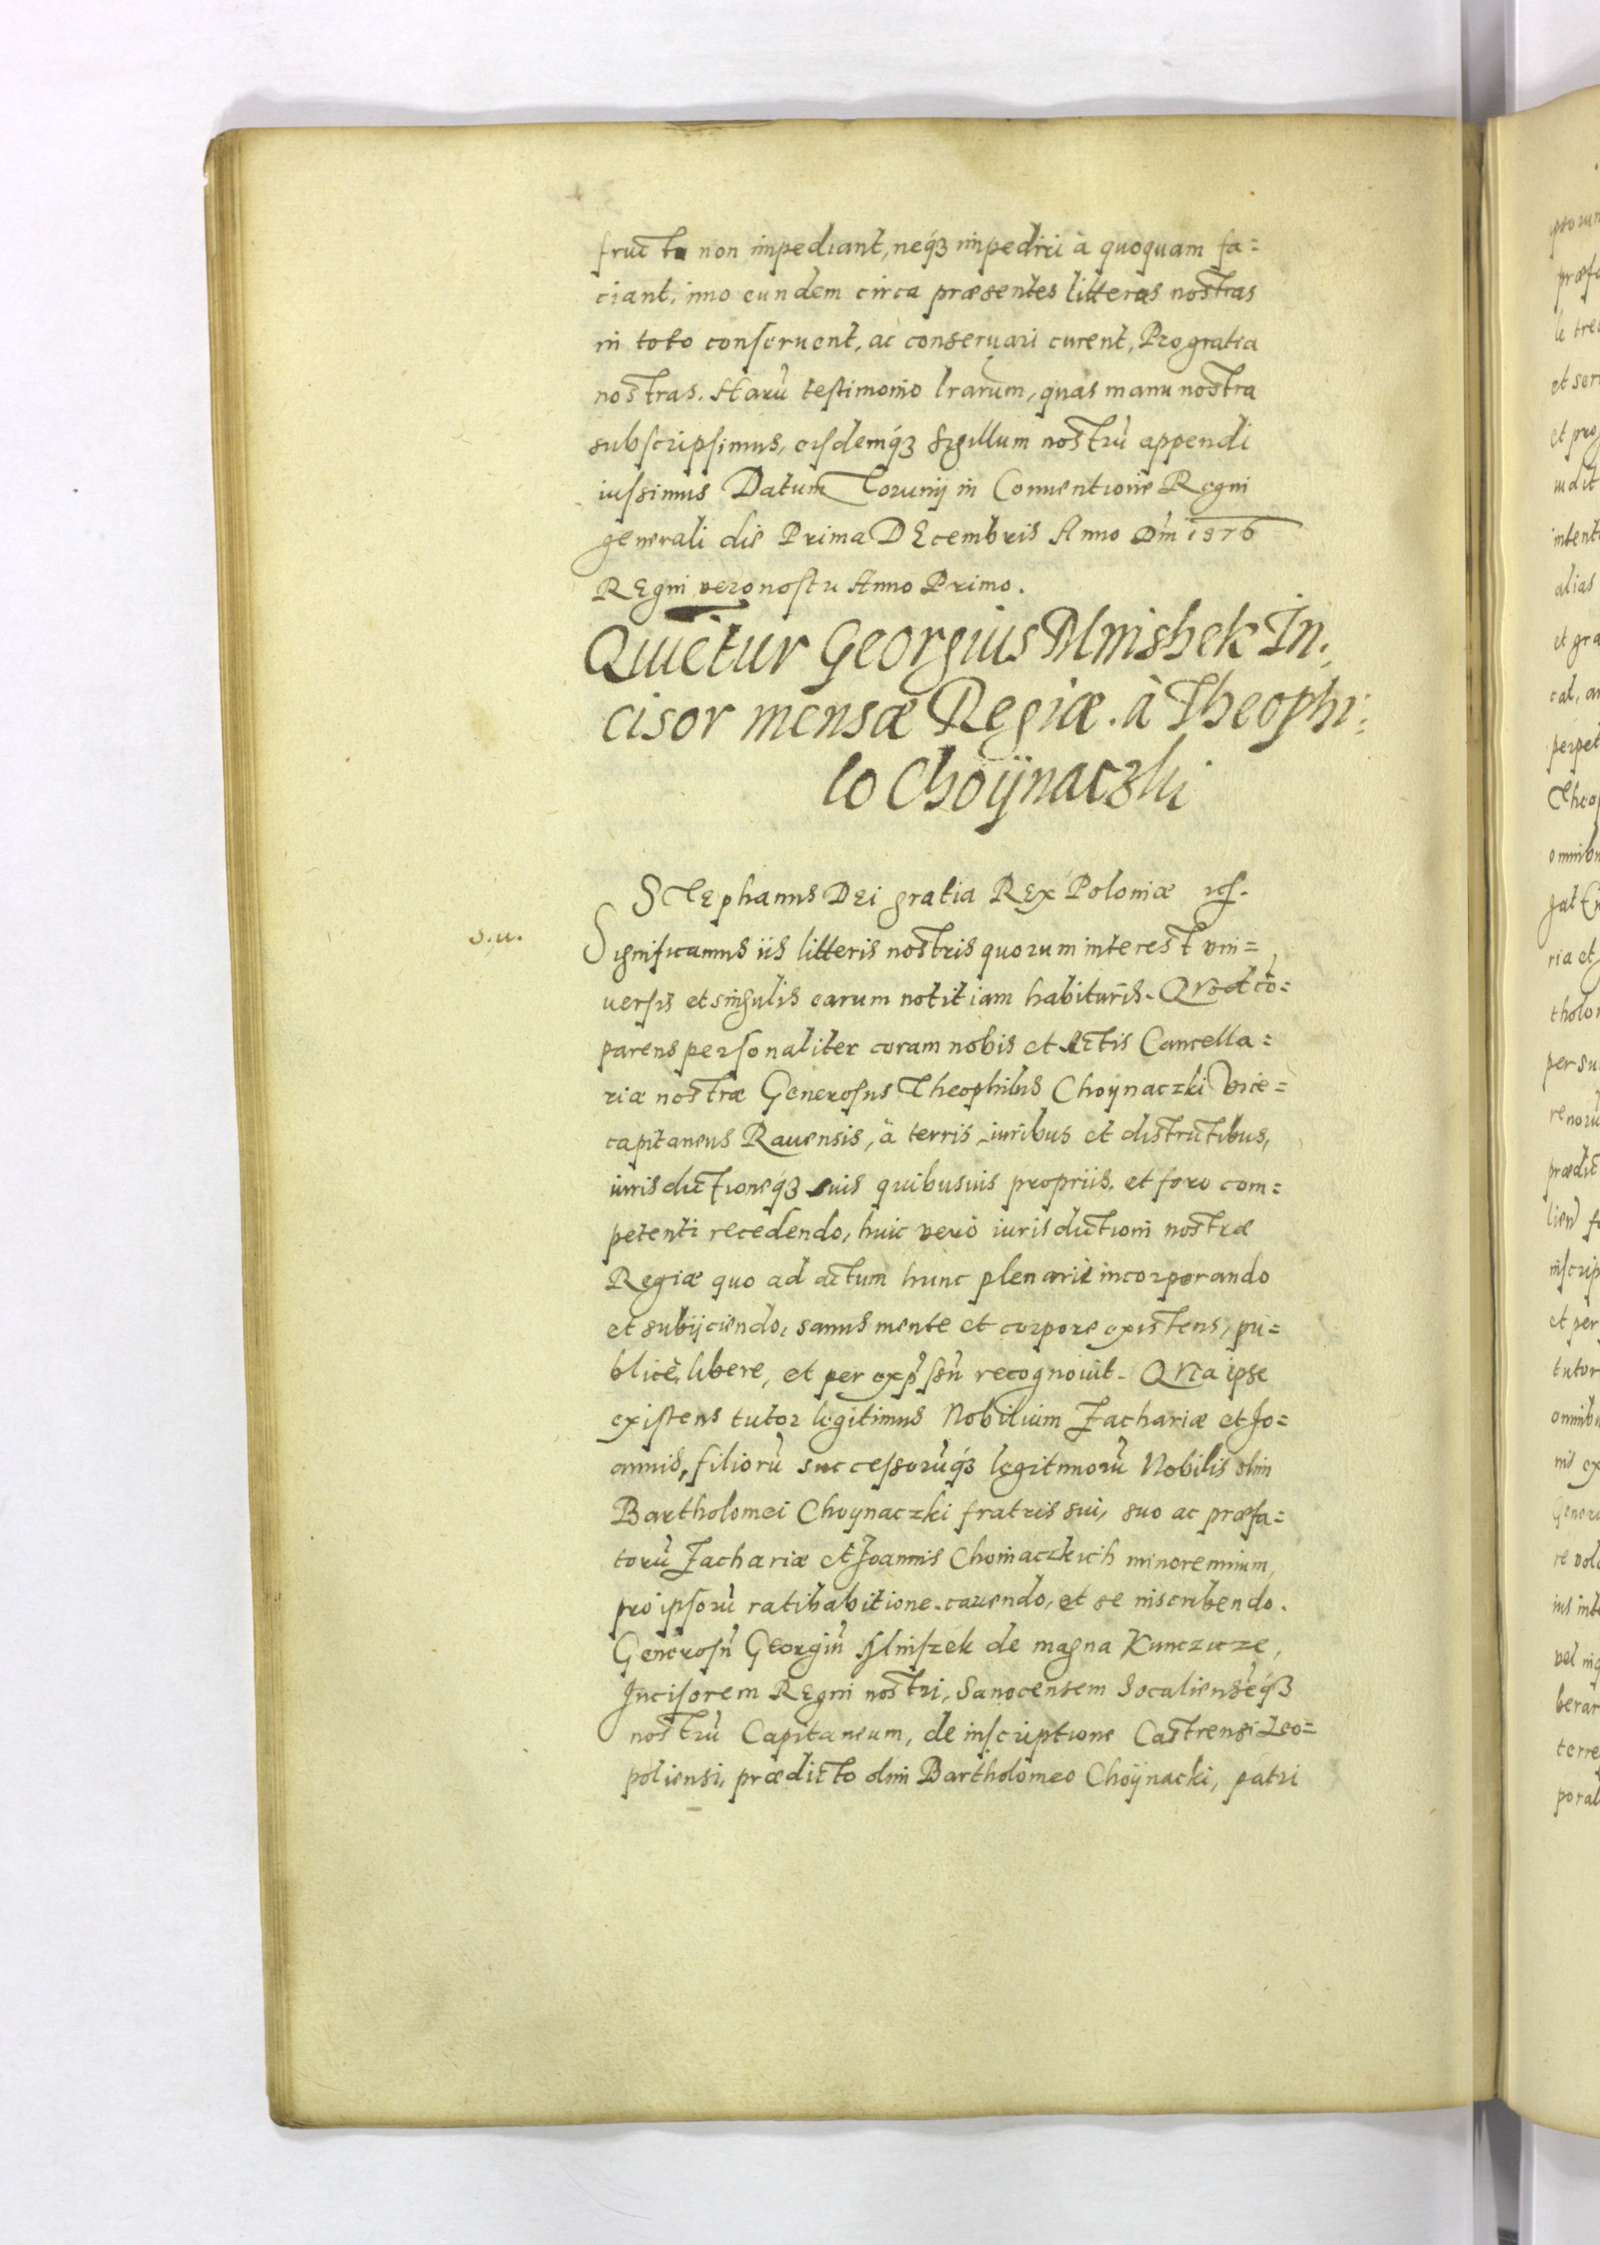 fructu non impediant, neq́ꝫ impediri à quoquam fa=
ciant, imo eundem circa præsentes litteras nostras
in toto conseruent, ac conseruari curent, Pro gratia
nostras. Harũ testimonio lrarum, quas manu nostra
subscripsimus, eisdemq́ꝫ sigillum nostrũ appendi
iussimus Datum Torunij in Conuentione Regni
generali die Prima DEcembris Anno Dm̃ 1576
REgni vero nostri Anno Primo.
Quietur Georgius Mnishek In:
cisor mensæ Regiæ. à Theophi:
lo Choÿnaczki
STEphanus DEi gratia REx Poloniæ
s.u.
Significamus iis litteris nostris quorum interest vni=
uersis et singulis earum notitiam habituris. QVod cõ=
parens personaliter coram nobis et Actis Cancella=
riæ nostræ Generosus Theophilus Choÿnaczki Vice=
capitaneus Rauensis, à terris, iuribus et districtibus,
iurisdictioneq́ꝫ suis quibusuis propriis, et foro com=
petenti recedendo, huic verò iurisdictioni nostræ
Regiæ quo ad actum hunc plenarie incorporando
et subijciendo, sanus mente et corpore existens, pu=
blicè, libere, et per exp̃ssũ recognouit. QVia ipse
existens tutor legitimus Nobilium Zachariæ et Jo=
annis, filiorũ successorũq́ꝫ legitimorũ Nobilis olim
Bartholomei Choynaczki fratris sui, suo ac præfa=
torũ Zachariæ et Joannis Choinaczkich minorennium,
pro ipsorũ ratihabitione cauendo, et se inscribendo.
Generosũ Georgiũ Mniszek de magna Kunczicze,
Incisorem REgni nostri, Sanocensem Socaliensẽq́ꝫ
nostrũ Capitaneum, de inscriptione Castrensi Leo=
poliensi, prædicto olim Bartholomeo Choÿnacki, patri